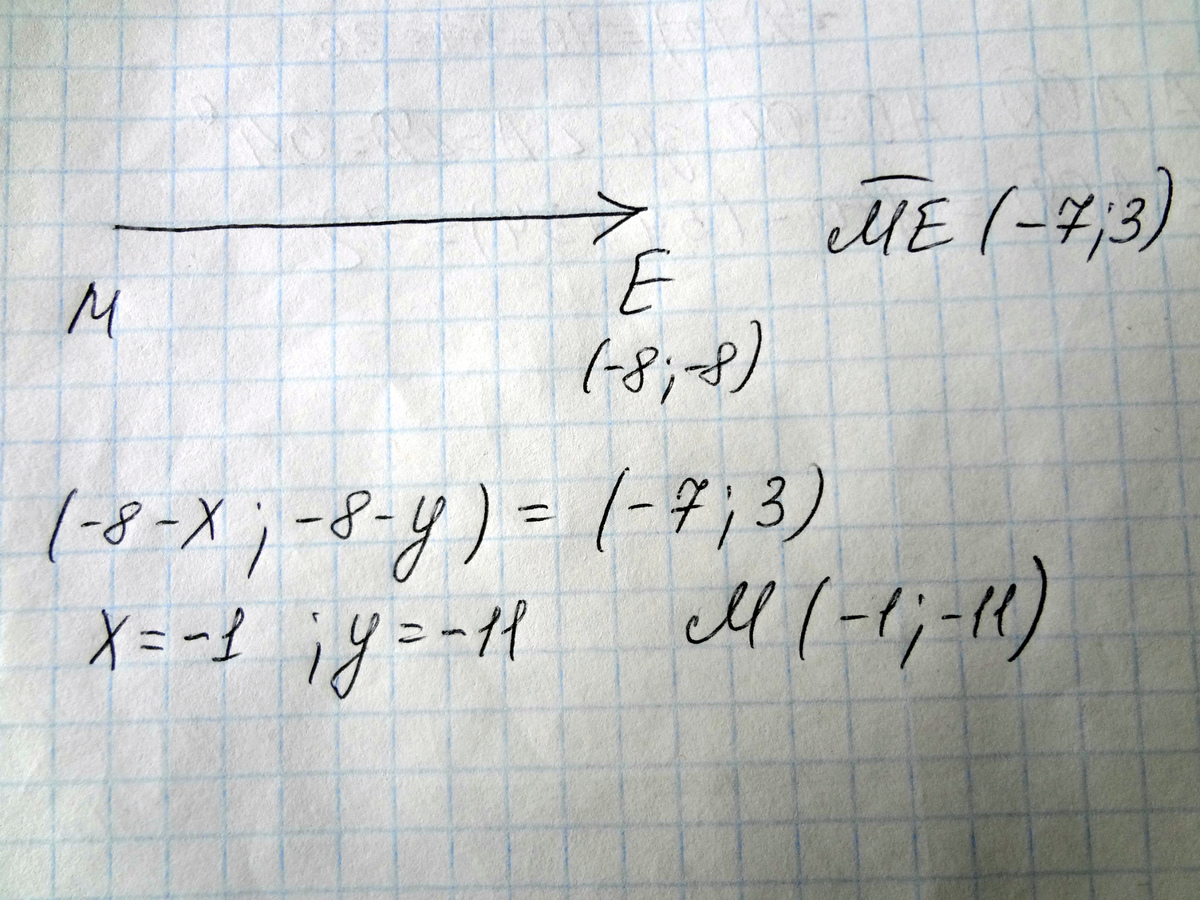 M
E
M̅E̅ (-7;3)
(-8;-8)
(-8-x; -8-y) = (-7; 3)
x=-1 ; y=-11 M (-1;-11)